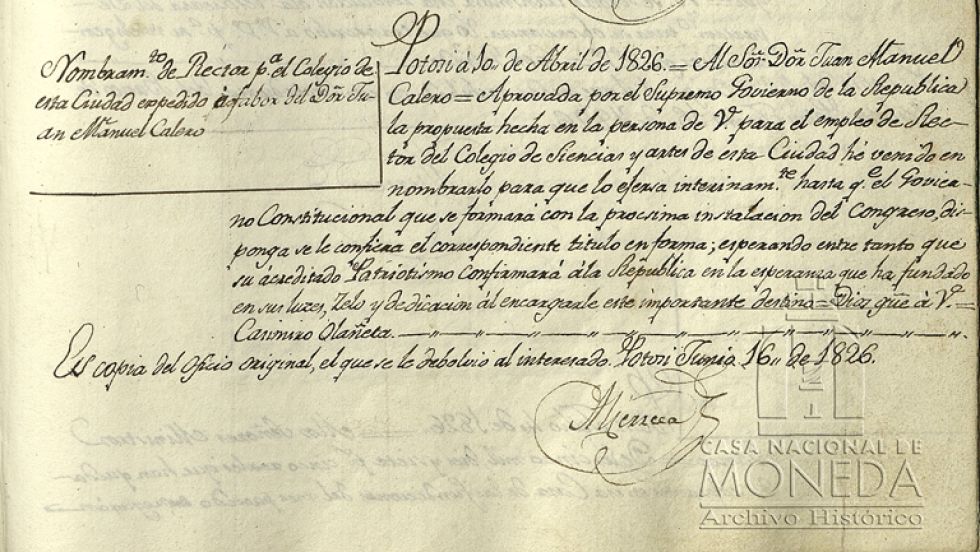 Nombram.to de Rector p.a el Colegio de
esta Ciudad expedido á fabor del Dõr Ju-
an Manuel Calero
Potosi á 10,, de Abril de 1826. = Al Sõr Dõr Juan Manuel
Calero = Aprovada por el Supremo Govierno de la Republica
la propuesta hecha en la persona de V. para el empleo de Rec-
tor del Colegio de Siencias y artes de esta Ciudad hé venido en
nombrarlo para que lo ejersa interinam.te hasta q.e el Govier-
no Constitucional que se formará con la procsima instalacion del Congreso, dis-
ponga se le confiera el correspondiente titulo en forma; esperando entre tanto que
su acreditado Patriotismo confirmará á la Republica en la esperanza que ha fundado
en sus luzes, Zelo y dedicacion al encargarle este importante destino = Dios güe á V. =
Casimiro Olañeta.
Es copia del Oficio original, el que se le debolvio al interesado. Potosi Junio 16,, de 1826.
CASA NACIONAL DE
MONEDA
Archivo Histórico